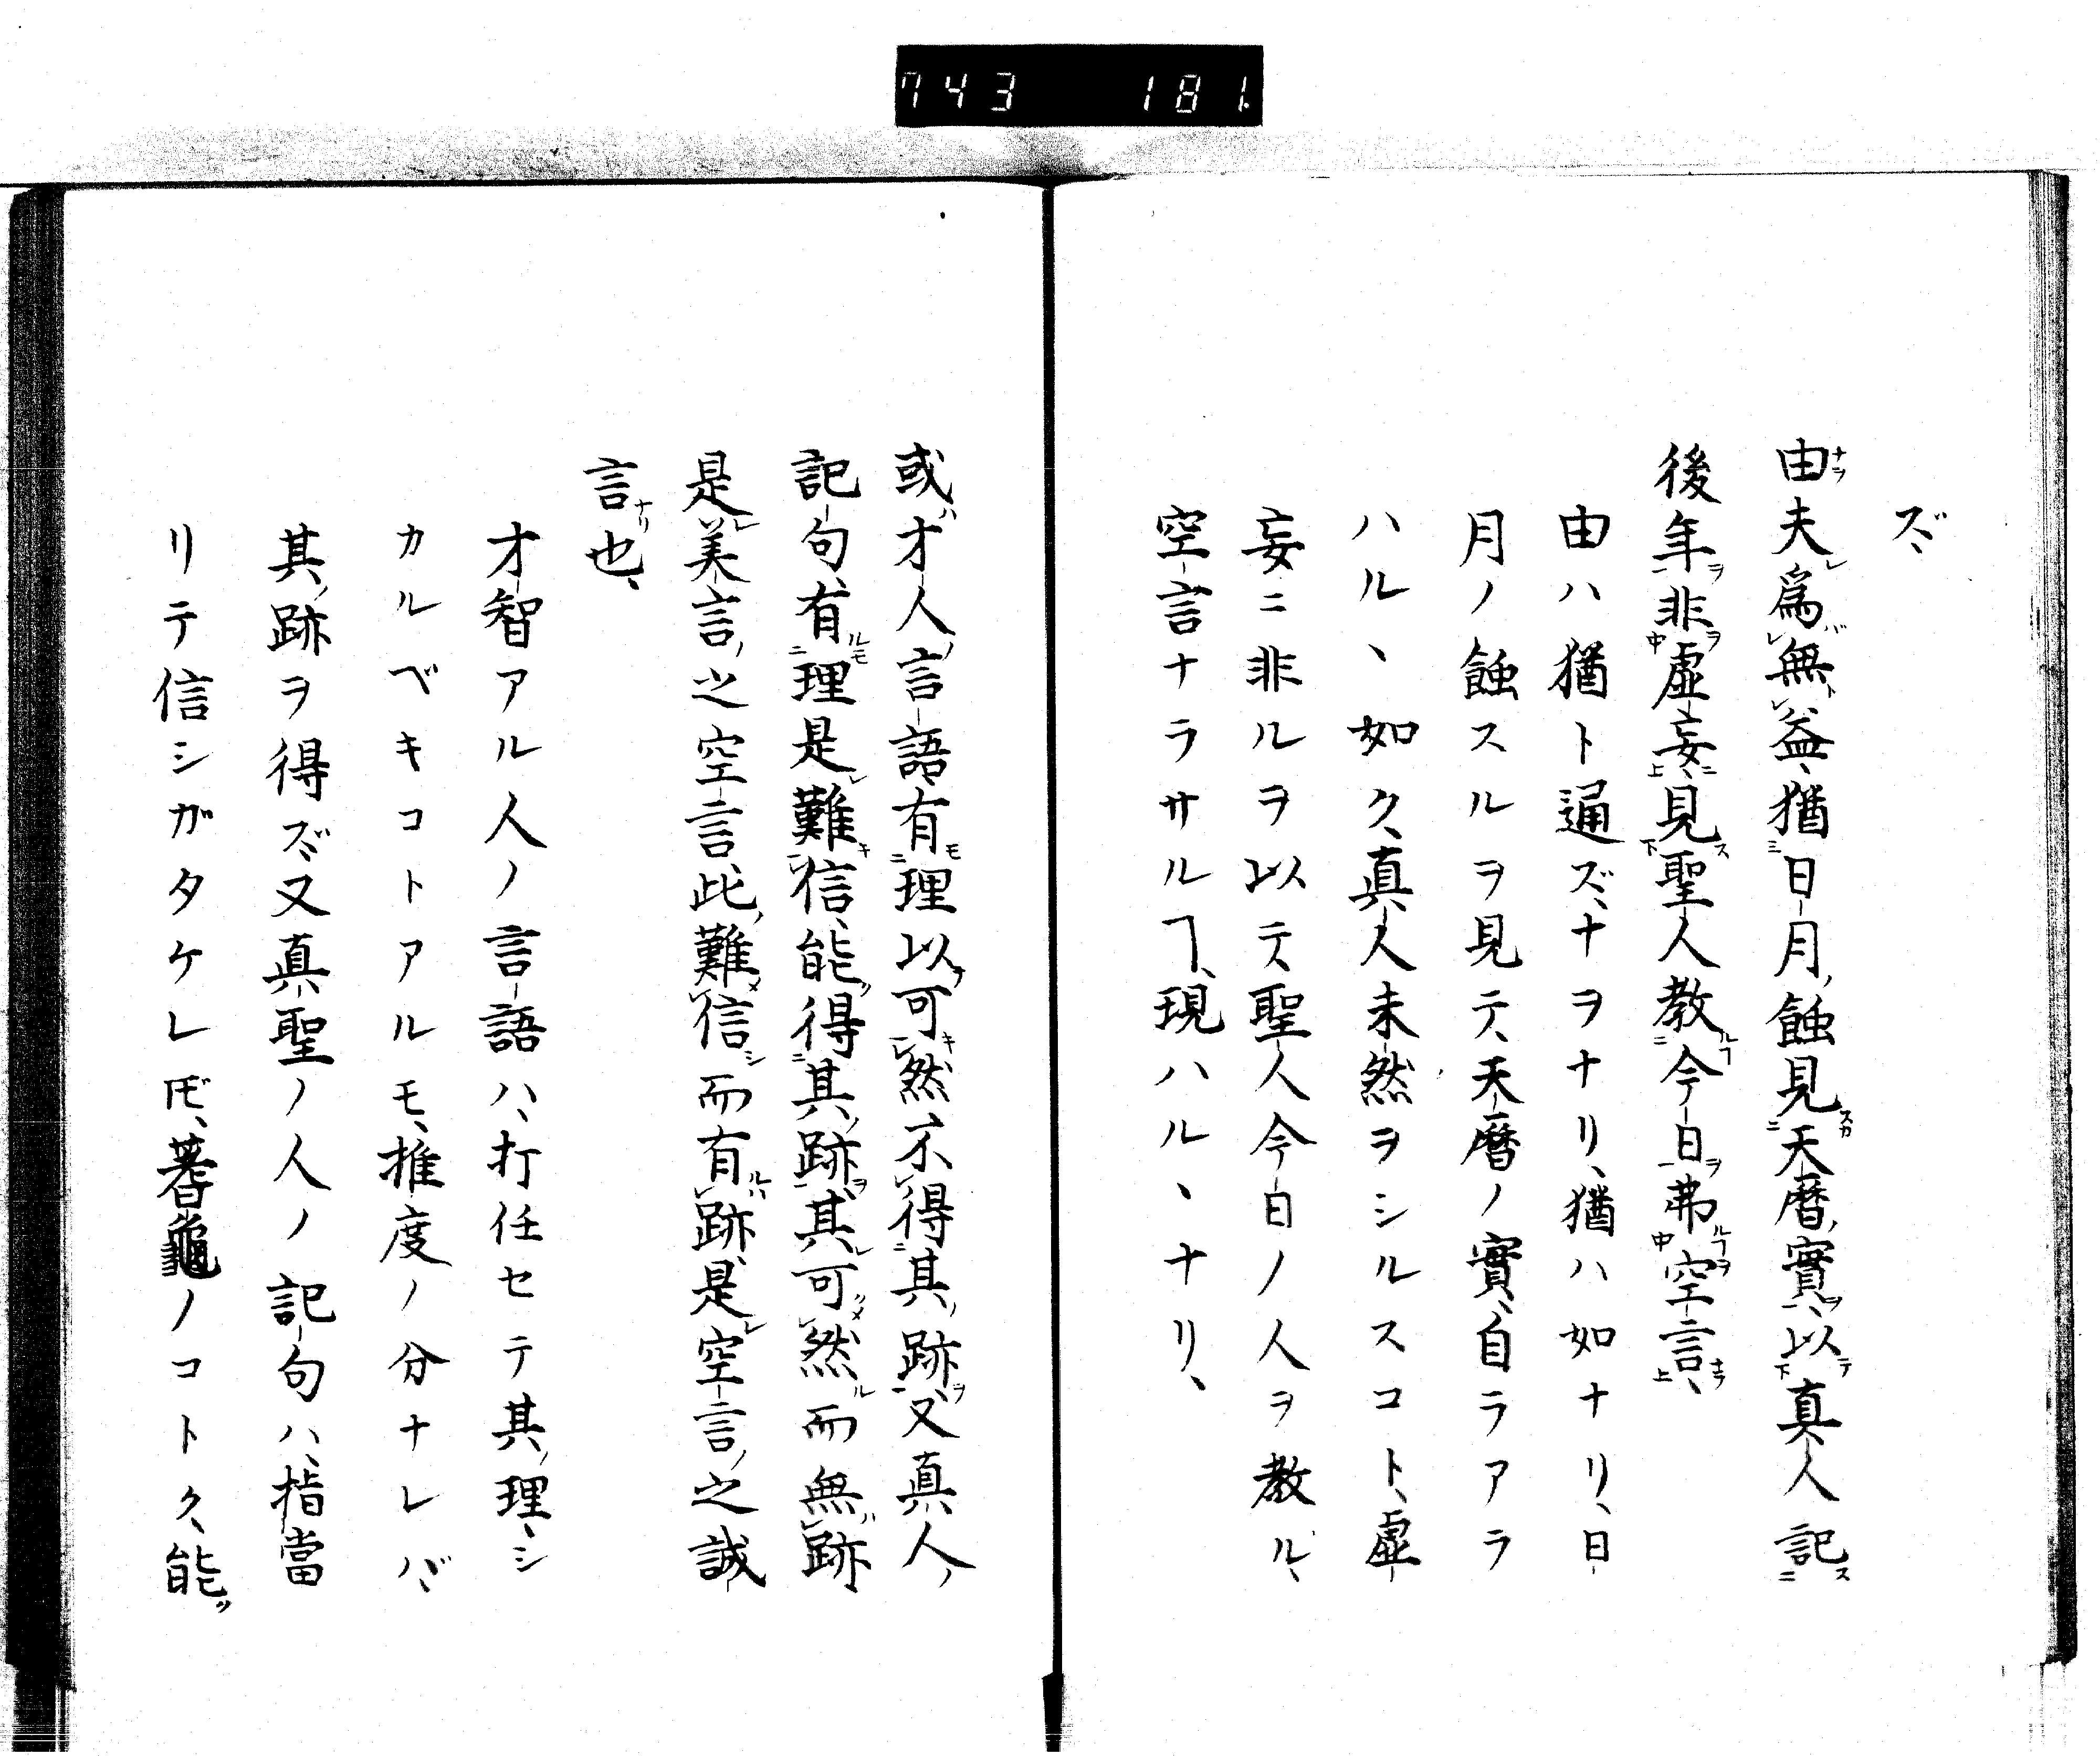 743 181.
ズ、
由夫爲無益、猶日月蝕見天暦實、以真人記
後年非虚妄、見聖人教今日弗空言、
由ハ猶ト通ズ、ナヲナリ、猶ハ如ナリ、日
月ノ蝕スルヲ見テ、天暦ノ實、自ラアラ
ハル、如ク、真人未然ヲシルスコト、虚
妄ニ非ルヲ以テ、聖人今日ノ人ヲ教ル、
空言ナラサルヿ、現ハル、ナリ、
或才人言語、有理以可然、不得其跡、又真人
記句、有理是難信、能得其跡、其可然而無跡
是美言之空言、此難信而有跡、是空言之誠
言也、
才智アル人ノ言語ハ、打任セテ其理、シ
カルベキコトアルモ、推度ノ分ナレバ、
其跡ヲ得ズ、又真聖ノ人ノ記句ハ、指當
リテ信シガタケレ𪜈、蓍龜ノコトク、能